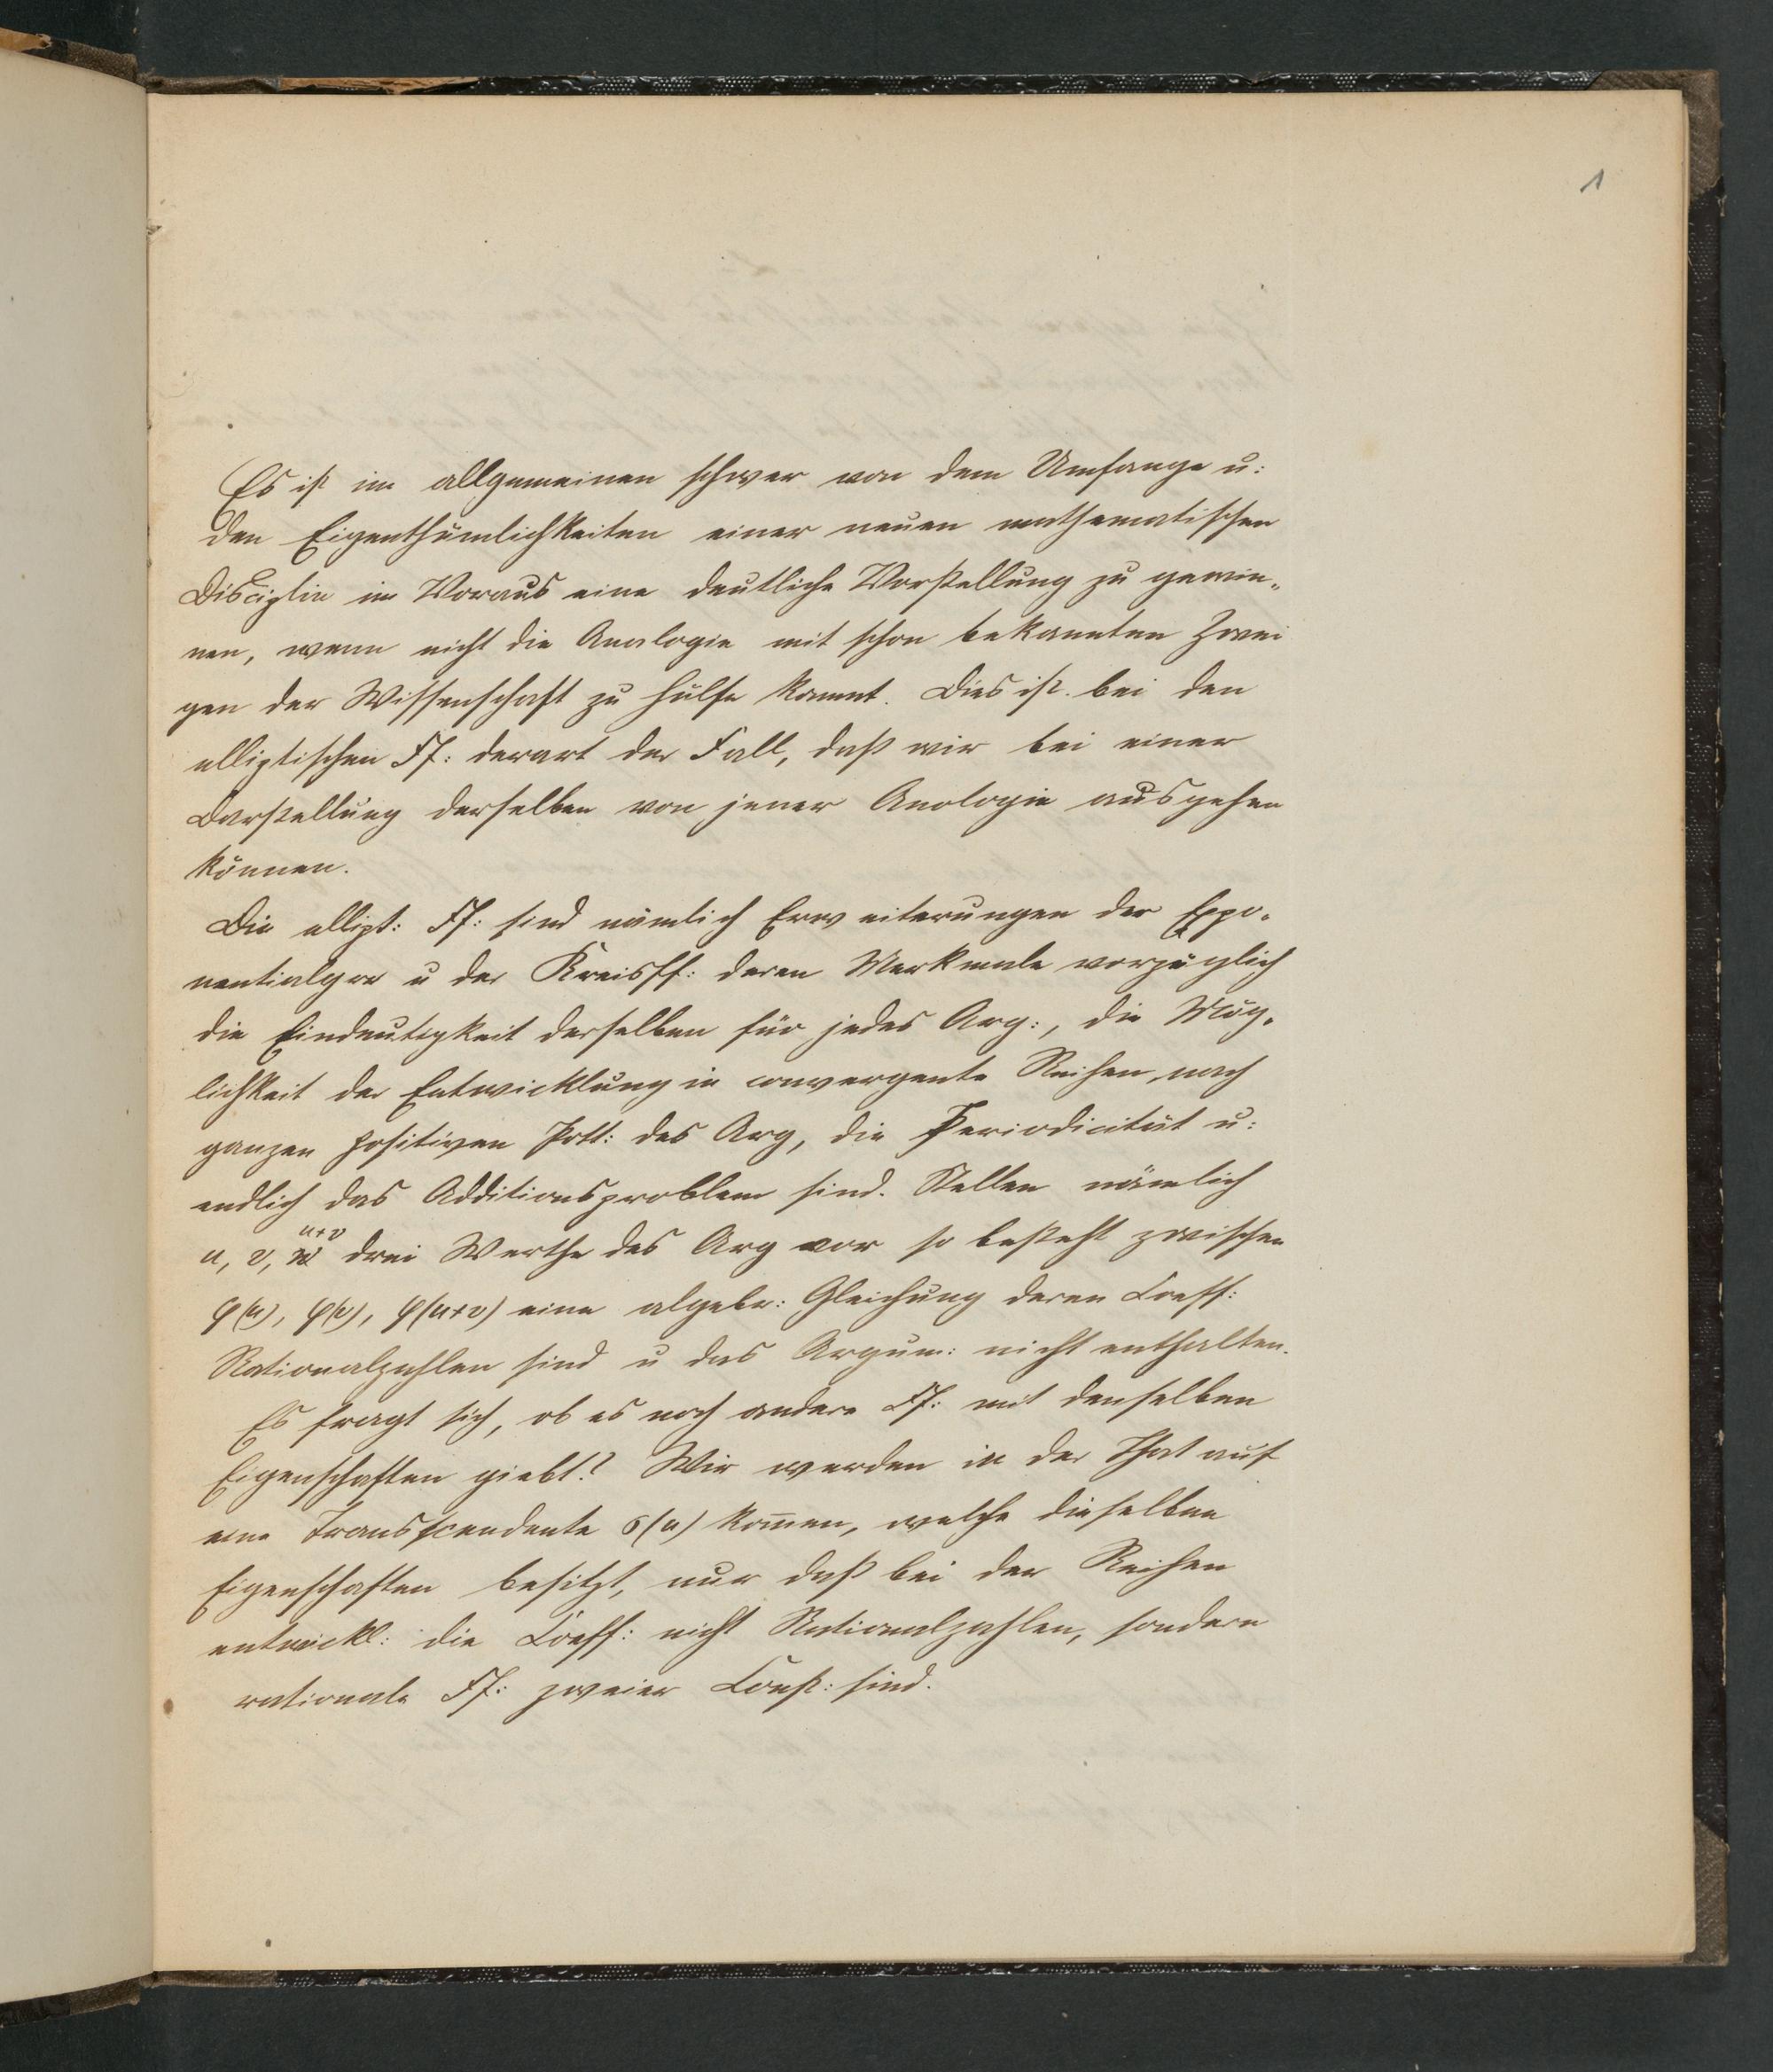 1
Es ist im allgemeinen schwer von dem Umfange u:
den Eigenthümlichkeiten einer neuen mathematischen
Disciplin im Voraus eine deutliche Vorstellung zu gewin„
nen, wenn nicht die Analogie mit schon bekannten Zwei
gen der Wissenschaft zu Hülfe kommt. Dies ist bei den
elliptischen Ff: derart der Fall, daß wir bei einer
Darstellung derselben von jener Analogie ausgehen
können.
Die ellipt: Ff: sind nämlich Erweiterungen der Expo„
nentialgr u der Kreisff: deren Merkmale vorzüglich
die Eindeutigkeit derselben für jedes Arg:, die Mög„
lichkeit der Entwicklung in convergente Reihen nach
ganzen positiven Pott: des Arg, die Periodicität u:
endlich das Additionsproblem sind. Stellen nämlich
u, v, u+v drei Werthe des Arg vor so besteht zwischen
φ(u), φ(v), φ(u+v) eine algebr: Gleichung deren Coeff:
Rationalzahlen sind u das Argum: nicht enthalten.
Es fragt sich, ob es noch andere Ff: mit denselben
Eigenschaften giebt? Wir werden in der That auf
eine Transscendente σ(u) kom̄en, welche dieselben
Eigenschaften besitzt, nur daß bei der Reihen
entwickl: die Coeff: nicht Rationalzahlen, sondern
rationale Ff: zweier Const: sind.